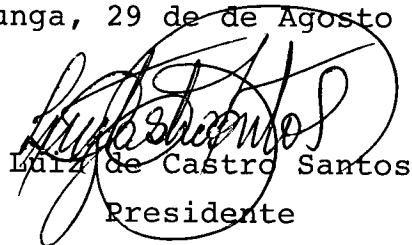 unga, 29 de de Agosto
Luiz de Castro Santos
Presidente